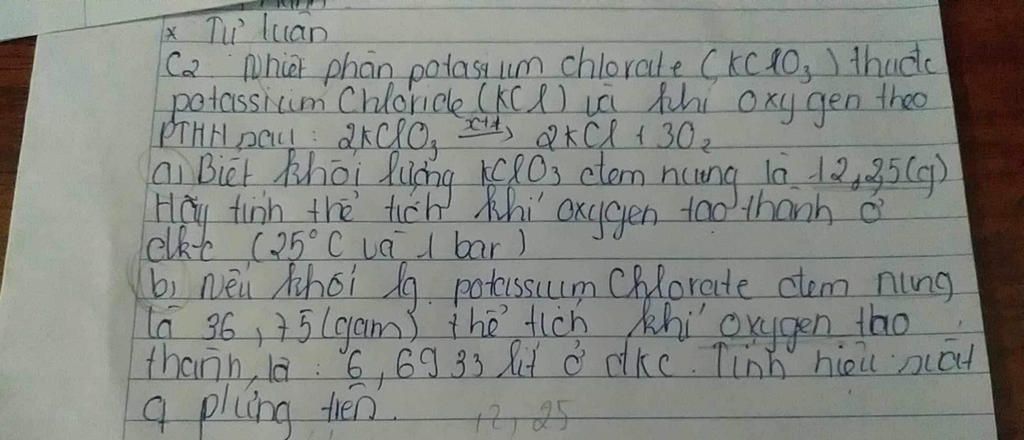 * Tự luận
C2 Nhiệt phân potassium chlorate (KClO3) thu đc
potassium Chloride (KCl) và khí oxygen theo
PTHH sau: 2KClO3 xt,t° → 2KCl + 3O2
a) Biết khối lượng KClO3 đem nung là 12,25(g)
Hãy tính thể tích khí oxygen tạo thành ở
đkc (25°C và 1 bar)
b) Nếu khối lg potassium Chlorate đem nung
là 36,75(gam) thể tích khí oxygen tạo
thành là: 6,6933 lít ở đkc. Tính hiệu suất
q phứng tiên.
12,25